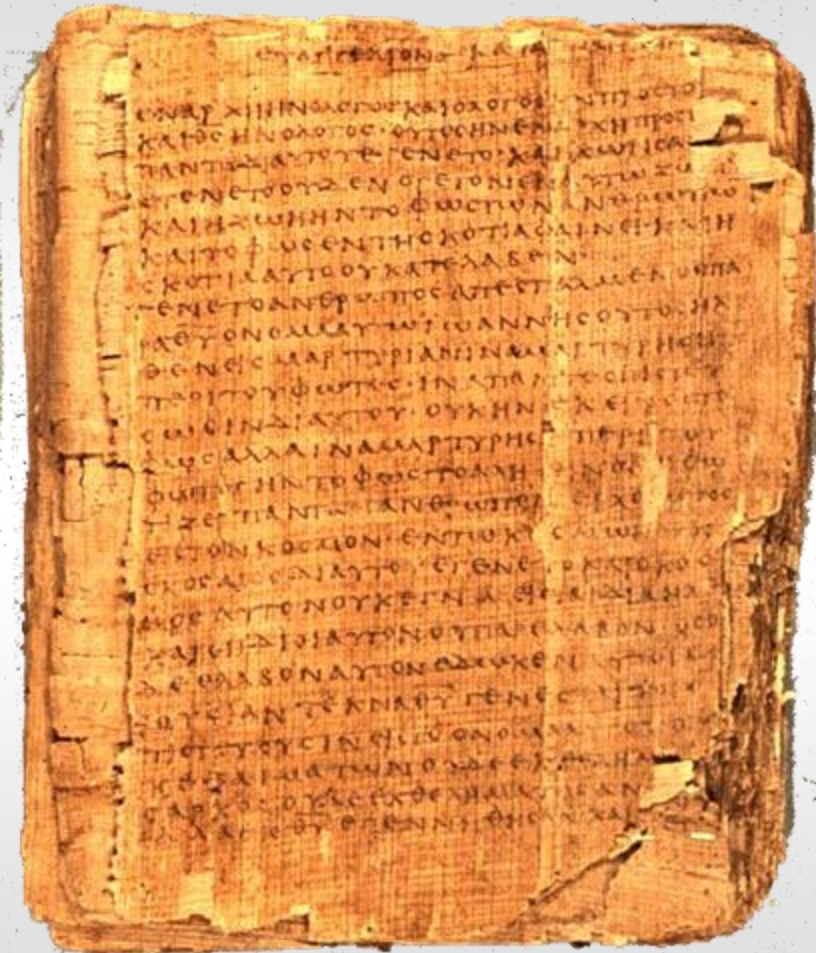 ΕΥΑΓΓΕΛΙΟΝ ΚΑΤΑ
ΕΝ ΑΡΧΗ ΗΝ Ο ΛΟΓΟϹ ΚΑΙ Ο ΛΟΓΟϹ ΗΝ ΠΡΟϹ ΤΟ
ΚΑΙ ΘϹ ΗΝ Ο ΛΟΓΟϹ· ΟΥΤΟϹ ΗΝ ΕΝ ΑΡΧΗ ΠΡΟϹ
ΠΑΝΤΑ ΔΙ ΑΥΤΟΥ ΕΓΕΝΕΤΟ· ΚΑΙ ΧΩΡΙϹ Α
ΕΓΕΝΕΤΟ ΟΥΔΕΝ Ο ΓΕΓΟΝΕΝ ΕΝ ΑΥΤΩ ΖΩ
ΚΑΙ Η ΖΩΗ ΗΝ ΤΟ ΦΩϹ ΤΩΝ ΑΝΘΡΩΠΩ
ΚΑΙ ΤΟ ΦΩϹ ΕΝ ΤΗ ϹΚΟΤΙΑ ΦΑΙΝΕΙ· ΚΑΙ Η
ϹΚΟΤΙΑ ΑΥΤΟ ΟΥ ΚΑΤΕΛΑΒΕΝ·
ΕΓΕΝΕΤΟ ΑΝΘΡΩΠΟϹ ΑΠΕϹΤΑΛΜΕΝΟϹ ΠΑ
ΡΑ ΘΥ ΟΝΟΜΑ ΑΥΤΩ ΙΩΑΝΝΗϹ ΟΥΤΟϹ ΗΛ
ΘΕΝ ΕΙϹ ΜΑΡΤΥΡΙΑΝ ΙΝΑ ΜΑΡΤΥΡΗϹΗ
ΠΕΡΙ ΤΟΥ ΦΩΤΟϹ· ΙΝΑ ΠΑΝΤΕϹ ΠΙϹΤΕΥ
ϹΩϹΙΝ ΔΙ ΑΥΤΟΥ· ΟΥΚ ΗΝ ΕΚΕΙΝΟϹ ΤΟ
ΦΩϹ ΑΛΛΑ ΙΝΑ ΜΑΡΤΥΡΗϹΗ ΠΕΡΙ ΤΟΥ
ΦΩΤΟϹ ΗΝ ΤΟ ΦΩϹ ΤΟ ΑΛΗΘΙΝΟΝ Ο ΦΩ
ΤΙΖΕΙ ΠΑΝΤΑ ΑΝΘΡΩΠΟΝ ΕΡΧΟΜΕΝΟΝ
ΕΙϹ ΤΟΝ ΚΟϹΜΟΝ· ΕΝ ΤΩ ΚΟϹΜΩ ΗΝ Κ
ΚΟϹΜΟϹ ΔΙ ΑΥΤΟΥ ΕΓΕΝΕΤΟ ΚΑΙ Ο ΚΟϹ
ΜΟϹ ΑΥΤΟΝ ΟΥΚ ΕΓΝΩ ΕΙϹ ΤΑ ΙΔΙΑ ΗΛ
ΚΑΙ ΟΙ ΙΔΙΟΙ ΑΥΤΟΝ ΟΥ ΠΑΡΕΛΑΒΟΝ· ΟϹΟ
ΔΕ ΕΛΑΒΟΝ ΑΥΤΟΝ ΕΔΩΚΕΝ ΑΥΤΟΙϹ Ε
ΞΟΥϹΙΑΝ ΤΕΚΝΑ ΘΥ ΓΕΝΕϹΘΑΙ ΤΟΙϹ
ΠΙϹΤΕΥΟΥϹΙΝ ΕΙϹ ΤΟ ΟΝΟΜΑ ΑΥΤΟΥ ΟΙ
ΟΥΚ ΕΞ ΑΙΜΑΤΩΝ ΟΥΔΕ ΕΚ ΘΕΛΗΜΑ
ϹΑΡΚΟϹ ΟΥΔΕ ΕΚ ΘΕΛΗΜΑΤΟϹ ΑΝ
ΑΛΛΑ ΕΚ ΘΥ ΕΓΕΝΝΗΘΗϹΑΝ ΚΑΙ